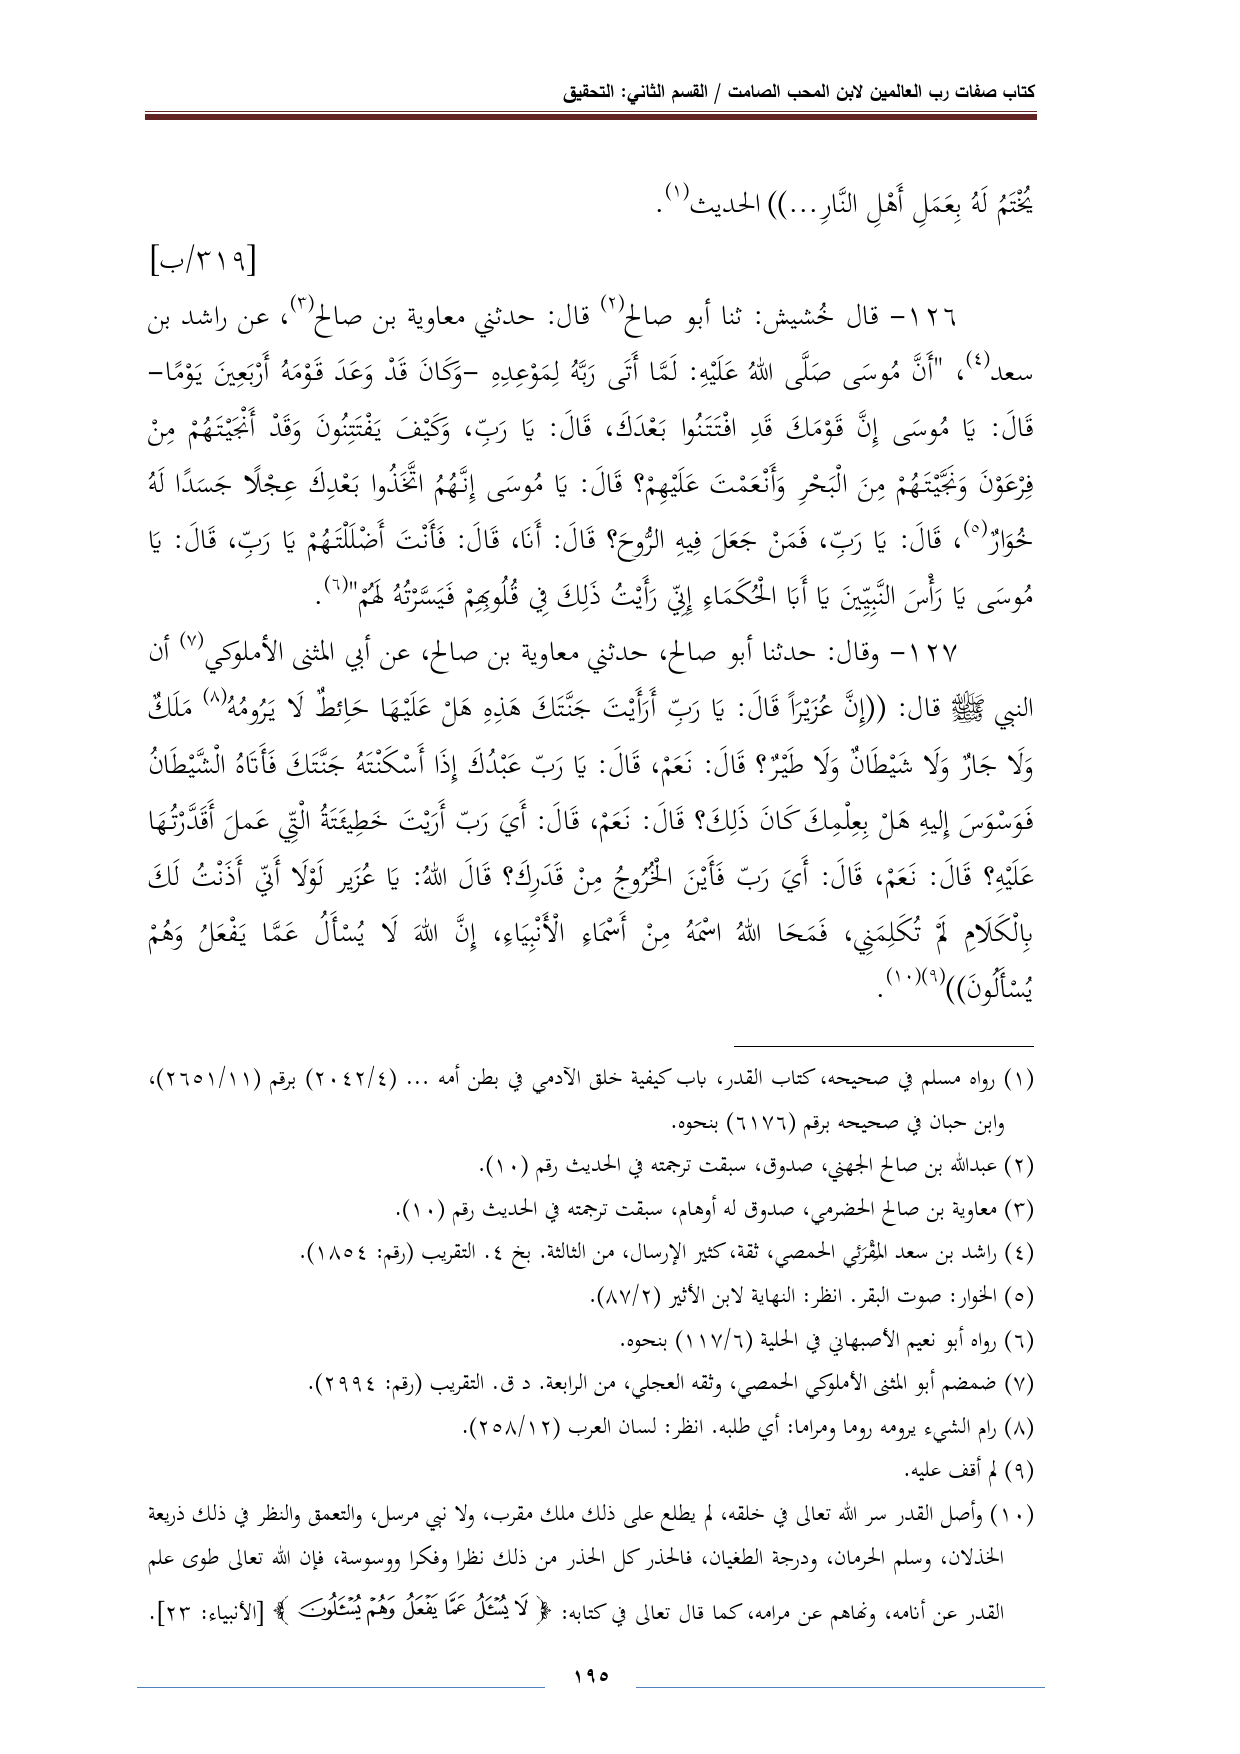 كتاب صفات رب العالمين لابن المحب الصامت / القسم الثاني: التحقيق
يُخْتَمُ لَهُ بِعَمَلِ أَهْلِ النَّارِ...)) الحديث(١).
[٣١٩/ب]
١٢٦- قال خُشيش: ثنا أبو صالح(٢) قال: حدثني معاوية بن صالح(٣)، عن راشد بن
سعد(٤)، "أَنَّ مُوسَى صَلَّى اللهُ عَلَيْهِ: لَمَّا أَتَى رَبَّهُ لِمَوْعِدِهِ -وَكَانَ قَدْ وَعَدَ قَوْمَهُ أَرْبَعِينَ يَوْمًا-
قَالَ: يَا مُوسَى إِنَّ قَوْمَكَ قَدِ افْتَتَنُوا بَعْدَكَ، قَالَ: يَا رَبِّ، وَكَيْفَ يَفْتَتِنُونَ وَقَدْ أَنْجَيْتَهُمْ مِنْ
فِرْعَوْنَ وَنَجَّيْتَهُمْ مِنَ الْبَحْرِ وَأَنْعَمْتَ عَلَيْهِمْ؟ قَالَ: يَا مُوسَى إِنَّهُمُ اتَّخَذُوا بَعْدِكَ عِجْلًا جَسَدًا لَهُ
خُوَارٌ(٥)، قَالَ: يَا رَبِّ، فَمَنْ جَعَلَ فِيهِ الرُّوحَ؟ قَالَ: أَنَا، قَالَ: فَأَنْتَ أَضْلَلْتَهُمْ يَا رَبِّ، قَالَ: يَا
مُوسَى يَا رَأْسَ النَّبِيِّينَ يَا أَبَا الْحُكَمَاءِ إِنِّي رَأَيْتُ ذَلِكَ فِي قُلُوبِهِمْ فَيَسَّرْتُهُ لَهُمْ"(٦).
١٢٧- وقال: حدثنا أبو صالح، حدثني معاوية بن صالح، عن أبي المثنى الأملوكي(٧) أن
النبي ﷺ قال: ((إِنَّ عُزَيْرَاً قَالَ: يَا رَبِّ أَرَأَيْتَ جَنَّتَكَ هَذِهِ هَلْ عَلَيْهَا حَائِطٌ لَا يَرُومُهُ(٨) مَلَكٌ
وَلَا جَارٌ وَلَا شَيْطَانٌ وَلَا طَيْرٌ؟ قَالَ: نَعَمْ، قَالَ: يَا رَبّ عَبْدُكَ إِذَا أَسْكَنْتَهُ جَنَّتَكَ فَأَتَاهُ الْشَّيْطَانُ
فَوَسْوَسَ إِليهِ هَلْ بِعِلْمِكَ كَانَ ذَلِكَ؟ قَالَ: نَعَمْ، قَالَ: أَيَ رَبّ أَرَيْتَ خَطِيئَتَةُ الْتِّي عَملَ أَقَدَّرْتُهَا
عَلَيْهِ؟ قَالَ: نَعَمْ، قَالَ: أَيَ رَبّ فَأَيْنَ الْخُرُوجُ مِنْ قَدَرِكَ؟ قَالَ اللهُ: يَا عُزَير لَوْلَا أَنِّي أَذَنْتُ لَكَ
بِالْكَلَامِ لَمْ تُكَلِمَنِي، فَمَحَا اللهُ اسْمَهُ مِنْ أَسْمَاءِ الْأَنْبِيَاءِ، إِنَّ اللهَ لَا يُسْأَلُ عَمَّا يَفْعَلُ وَهُمْ
يُسْأَلُونَ))(٩)(١٠).
(١) رواه مسلم في صحيحه، كتاب القدر، باب كيفية خلق الآدمي في بطن أمه ... (٢٠٤٢/٤) برقم (٢٦٥١/١١)،
وابن حبان في صحيحه برقم (٦١٧٦) بنحوه.
(٢) عبدالله بن صالح الجهني، صدوق، سبقت ترجمته في الحديث رقم (١٠).
(٣) معاوية بن صالح الحضرمي، صدوق له أوهام، سبقت ترجمته في الحديث رقم (١٠).
(٤) راشد بن سعد المِقْرَئي الحمصي، ثقة، كثير الإرسال، من الثالثة. بخ ٤. التقريب (رقم: ١٨٥٤).
(٥) الخوار: صوت البقر. انظر: النهاية لابن الأثير (٨٧/٢).
(٦) رواه أبو نعيم الأصبهاني في الحلية (١١٧/٦) بنحوه.
(٧) ضمضم أبو المثنى الأملوكي الحمصي، وثقه العجلي، من الرابعة. د ق. التقريب (رقم: ٢٩٩٤).
(٨) رام الشيء يرومه روما ومراما: أي طلبه. انظر: لسان العرب (٢٥٨/١٢).
(٩) لم أقف عليه.
(١٠) وأصل القدر سر الله تعالى في خلقه، لم يطلع على ذلك ملك مقرب، ولا نبي مرسل، والتعمق والنظر في ذلك ذريعة
الخذلان، وسلم الحرمان، ودرجة الطغيان، فالحذر كل الحذر من ذلك نظرا وفكرا ووسوسة، فإن الله تعالى طوى علم
القدر عن أنامه، ونهاهم عن مرامه، كما قال تعالى في كتابه: ﴿ لَا يُسْـَٔلُ عَمَّا يَفْعَلُ وَهُمْ يُسْـَٔلُونَ ﴾ [الأنبياء: ٢٣].
١٩٥